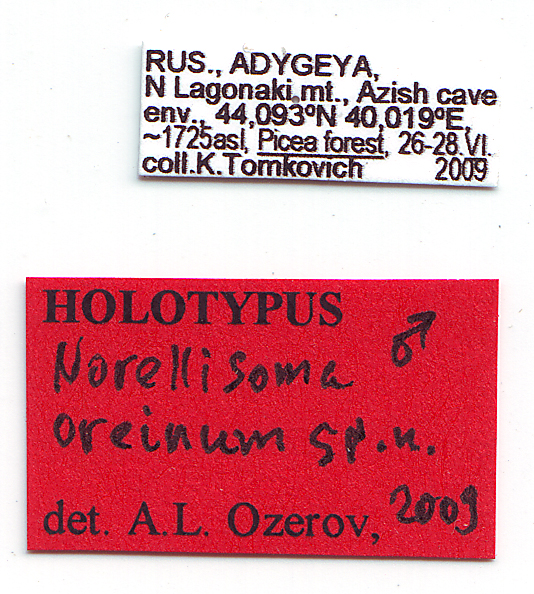 RUS., ADYGEYA,
N Lagonaki.mt., Azish cave
env., 44,093ºN 40,019ºE,
~1725asl, Picea forest, 26-28.VI.
coll.K.Tomkovich 2009
HOLOTYPUS
Norellisoma ♂
oreinum sp.n.
det. A.L. Ozerov, 2009